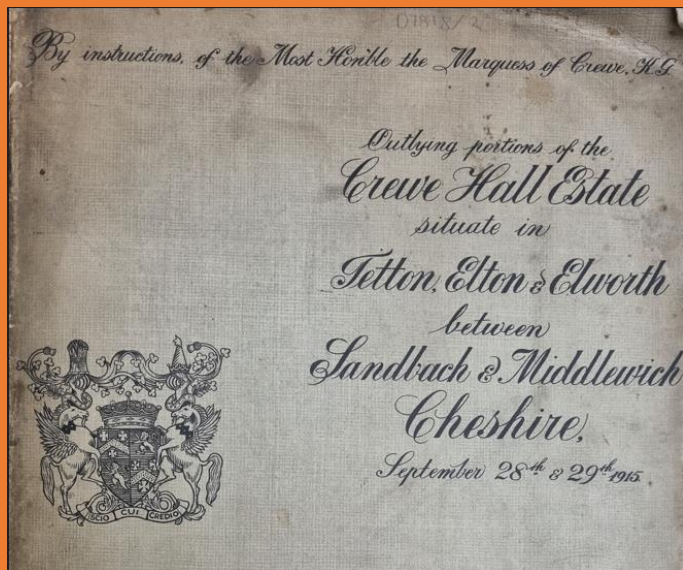 D1818/2
By instructions, of the Most Honble the Marquess of Crewe, K.G.
Outlying portions of the
Crewe Hall Estate
situate in
Tetton, Elton & Elworth
between
Sandbach & Middlewich
Cheshire,
September 28th & 29th 1915.
SCIO CUI CREDIDI